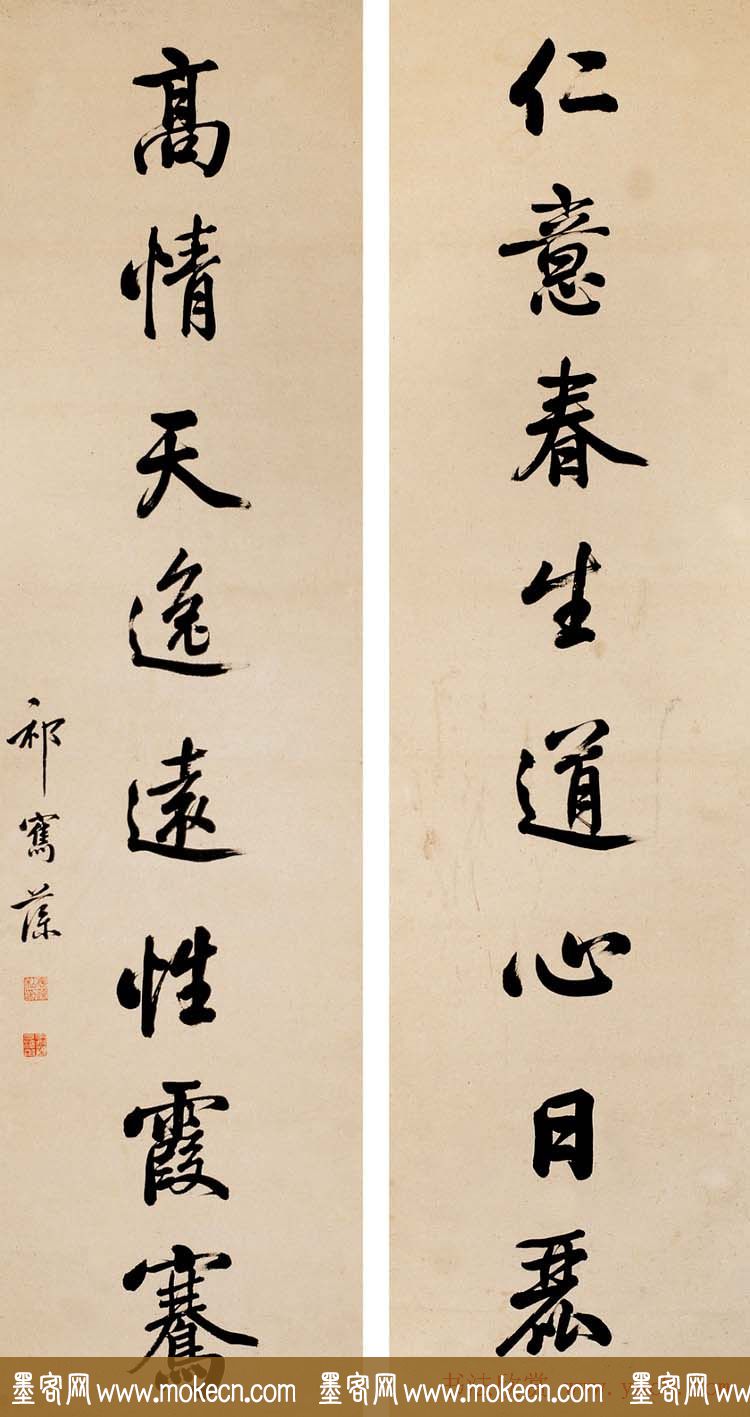 仁意春生道心日麗
高情天逸遠性霞騫
祁寯藻
墨客网www.mokecn.com 墨客网www.mokecn.com 墨客网www.mokecn.com